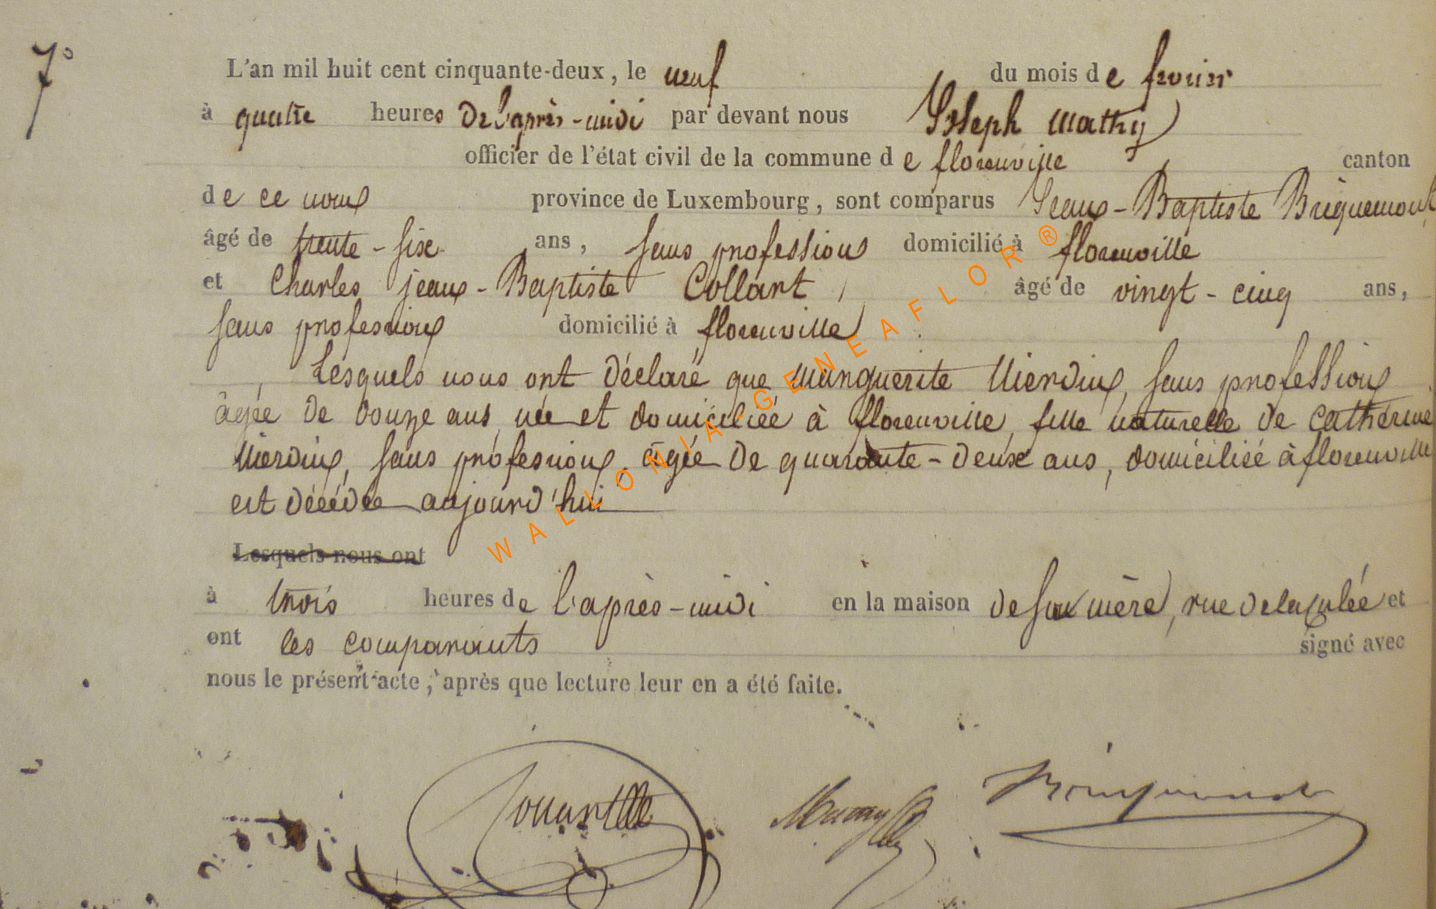 7°
L'an mil huit cent cinquante-deux, le neuf du mois de fevrier
à quatre heures de l'après-midi par devant nous Joseph Mathy
officier de l'état civil de la commune de florenville canton
de ce nom province de Luxembourg, sont comparus Jean-Baptiste Briquemont,
âgé de trente-six ans, sans profession domicilié à florenville
et Charles jean-Baptiste Collart, âgé de vingt-cinq ans,
sans profession domicilié à florenville
Lesquels nous ont déclaré que Marguerite Mierdin, sans profession
âgée de douze ans, née et domiciliée à florenville, fille naturelle de Catherine
Mierdin, sans profession, âgée de quarante-deux ans, domiciliée à florenville
est décédée aujourd'hui
Lesquels nous ont
à trois heures de l'après-midi en la maison de sa mère, rue de la et
ont les comparants signé avec
nous le présent acte, après que lecture leur en a été faite.
WALLONIA-GENEAFLOR®